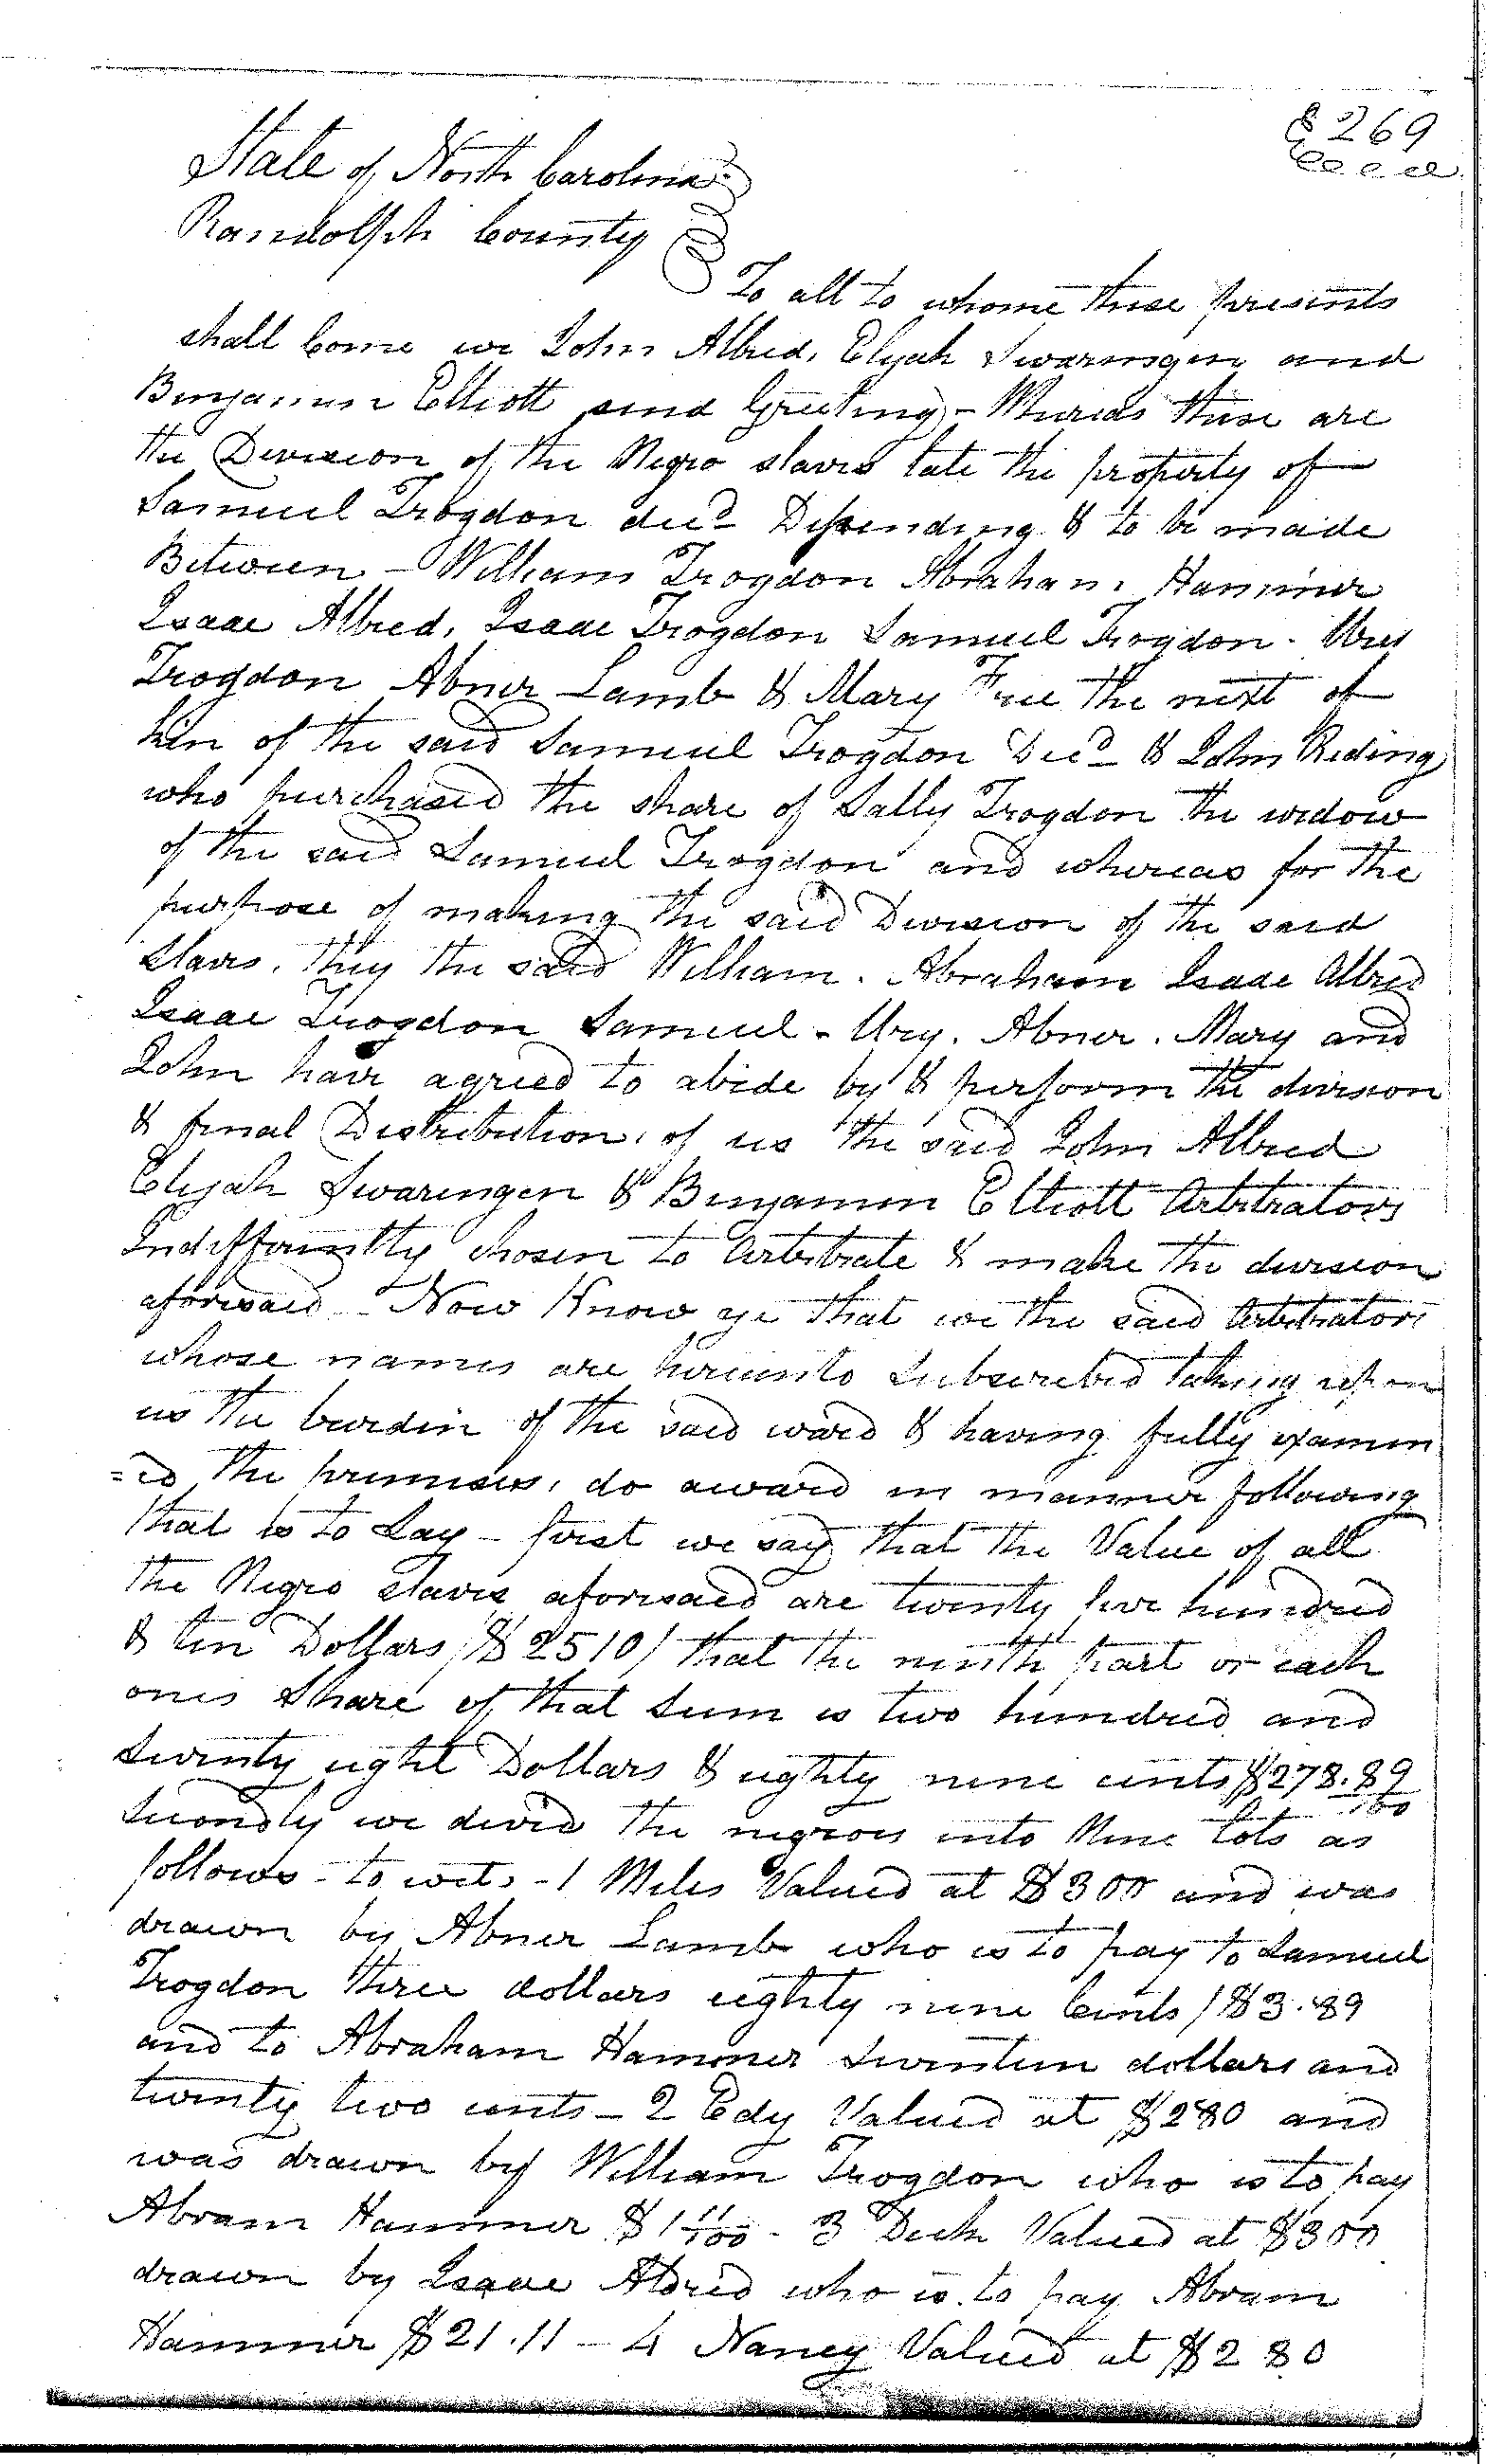 269
State of North Carolina
Randolph County
To all to whome these presents
shall Come we John Albred, Elijah Swaringen and
Benjamin Elliott send Greeting - Whereas there are
the Devision of the Negro slaves late the property of
Samuel Trogdon decd Depending & to be made
Between - William Trogdon Abraham Hammer
Isaac Allred, Isaac Trogdon Samuel Trogdon. Urey
Trogdon Abner Lamb & Mary Free the next of
kin of the said Samuel Trogdon Decd & John Reding
who purchased the share of Sally Trogdon the widow
of the said Samuel Trogdon and whereas for the
purpose of making the said Division of the said
Slaves. they the said William. Abraham Isaac Allred
Isaac Trogdon Samuel - Ury. Abner. Mary and
John have agreed to abide by & perform the division
& final Distribution, of us the said John Allred
Elijah Swaringen & Benjamin Elliott Arbitrators
Indifferently chosen to Arbitrate & make the division
aforesaid - Now Know ye that we the said Arbitrators
whose names are hereunto Subscribed taking upon
us the burden of the said ward & having fully examin
=ed the premises, do award in manner following
that is to Say - first we say that the Value of all
the Negro slaves aforesaid are twenty five hundred
& ten Dollars /$2510/ that the ninth part or each
ones Share of that Sum is two hundred and
Seventy eight Dollars & eighty nine cents $278.89/100
Secondly we devid the negroes into Nine Lots as
follows - to wit, - 1 Miles Valued at $300 and was
drawn by Abner Lamb who is to pay to Samuel
Trogdon three dollars eighty nine Cents /$3.89
and to Abraham Hammer Seventeen dollars and
twenty two cents - 2 Edy Valued at $280 and
was drawn by William Trogdon who is to pay
Abram Hammer $1 11/100 - 3 Dick Valued at $300
drawn by Isaac Alred who is to pay Abram
Hammer $21.11 - 4 Nancy Valued at $280